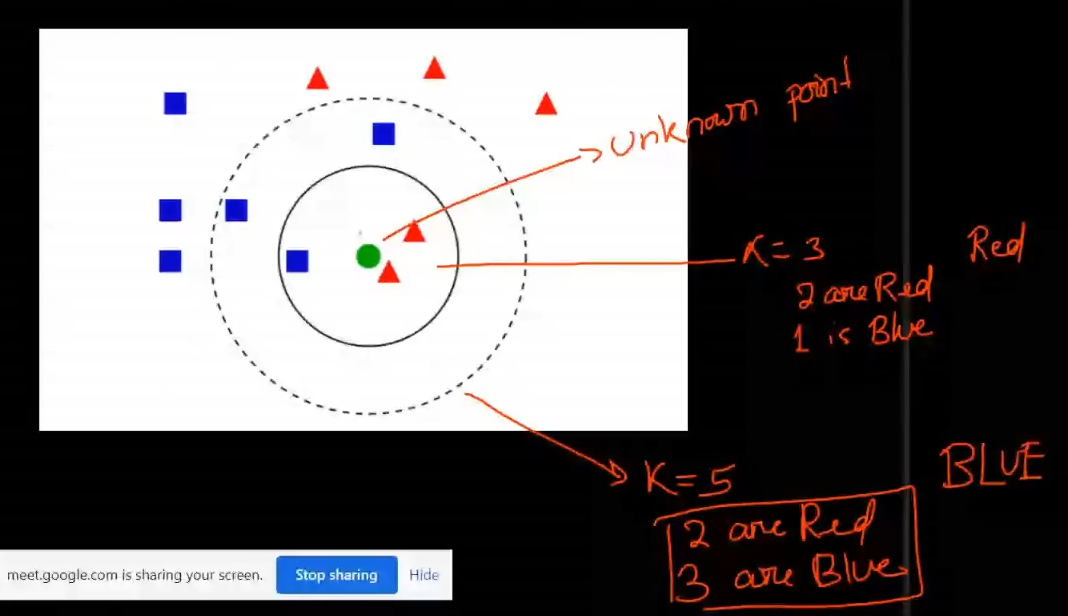 unknown point
K = 3 Red
2 are Red
1 is Blue
K = 5 BLUE
2 are Red
3 are Blue
meet.google.com is sharing your screen. Stop sharing Hide